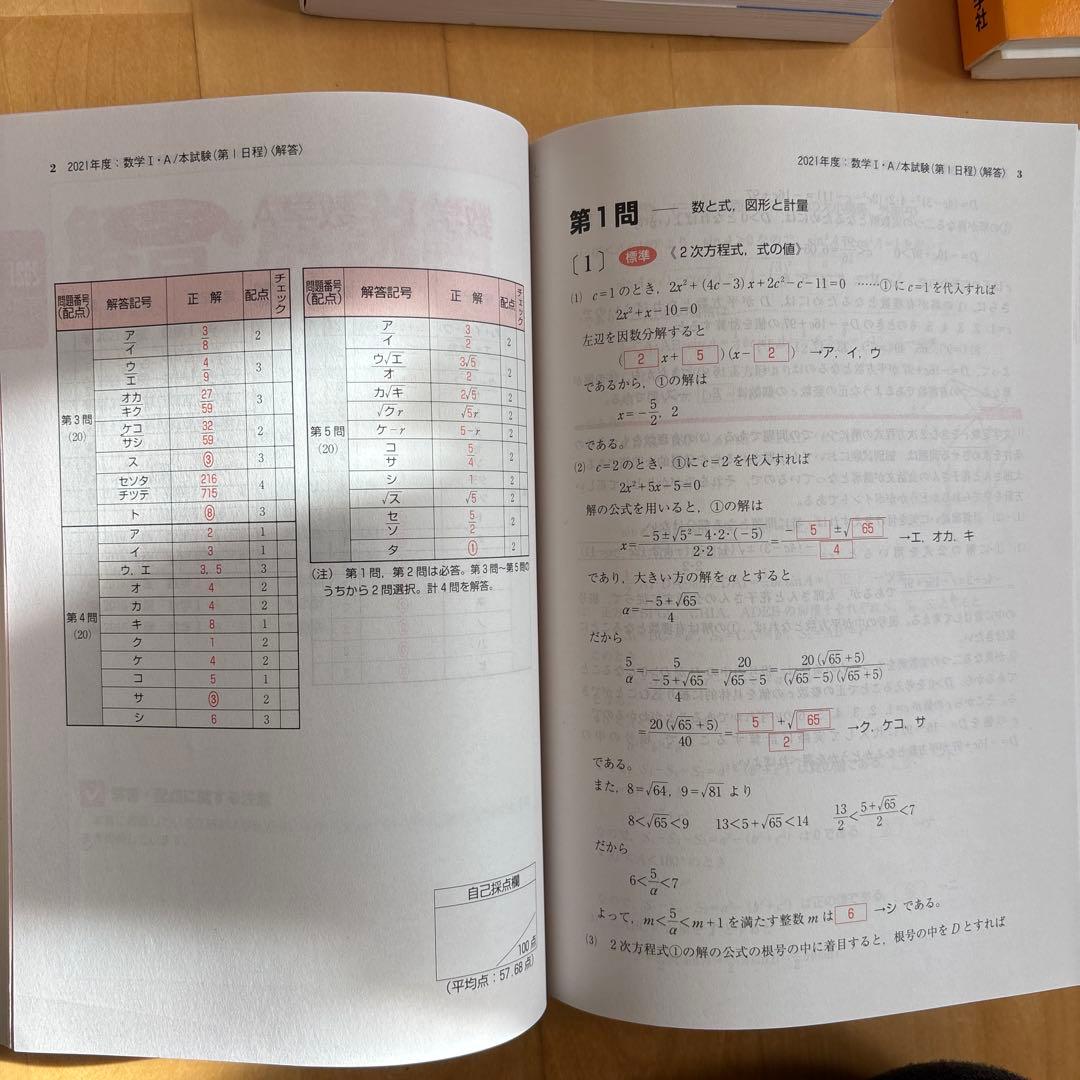 学社
2 2021年度:数学Ⅰ・A/本試験(第1日程)〈解答〉
問題番号(配点) 解答記号 正解 配点 チェック
第3問(20)
ア/イ 3/8 2
ウ/エ 4/9 3
オカ/キク 27/59 3
ケコ/サシ 32/59 2
ス ③ 3
セソタ/チツテ 216/715 4
ト ⑧ 3
第4問(20)
ア 2 1
イ 3 1
ウ, エ 3, 5 3
オ 4 2
カ 4 2
キ 8 1
ク 1 2
ケ 4 2
コ 5 1
サ ③ 2
シ 6 3
問題番号(配点) 解答記号 正解 配点 チェック
第5問(20)
ア/イ 3/2 2
ウ√エ/オ 3√5/2 2
カ√キ 2√5 2
√クr √5r 2
ケ-r 5-r 2
コ/サ 5/4 2
シ 1 2
√ス √5 2
セ/ソ 5/2 2
タ ① 2
(注) 第1問,第2問は必答。第3問~第5問の
うちから2問選択。計4問を解答。
自己採点欄
100点
(平均点:57.68点)
2021年度:数学Ⅰ・A/本試験(第1日程)〈解答〉 3
第1問 ―― 数と式,図形と計量
〔1〕 標準 《2次方程式,式の値》
(1) c=1のとき,2x²+(4c-3)x+2c²-c-11=0 ……①にc=1を代入すれば
2x²+x-10=0
左辺を因数分解すると
(2x+5)(x-2) →ア,イ,ウ
であるから,①の解は
x=-5/2, 2
である。
(2) c=2のとき,①にc=2を代入すれば
2x²+5x-5=0
解の公式を用いると,①の解は
x=(-5±√(5²-4・2・(-5)))/(2・2)=(-5±√65)/4 →エ,オカ,キ
であり,大きい方の解をαとすると
α=(-5+√65)/4
だから
5/α=5/((-5+√65)/4)=20/(√65-5)=20(√65+5)/((√65-5)(√65+5))
=20(√65+5)/40=(5+√65)/2 →ク,ケコ,サ
である。
また,8=√64,9=√81 より
8<√65<9 13<5+√65<14 13/2<(5+√65)/2<7
だから
6<5/α<7
よって,m<5/α<m+1を満たす整数mは 6 →シ である。
(3) 2次方程式①の解の公式の根号の中に着目すると,根号の中をDとすれば